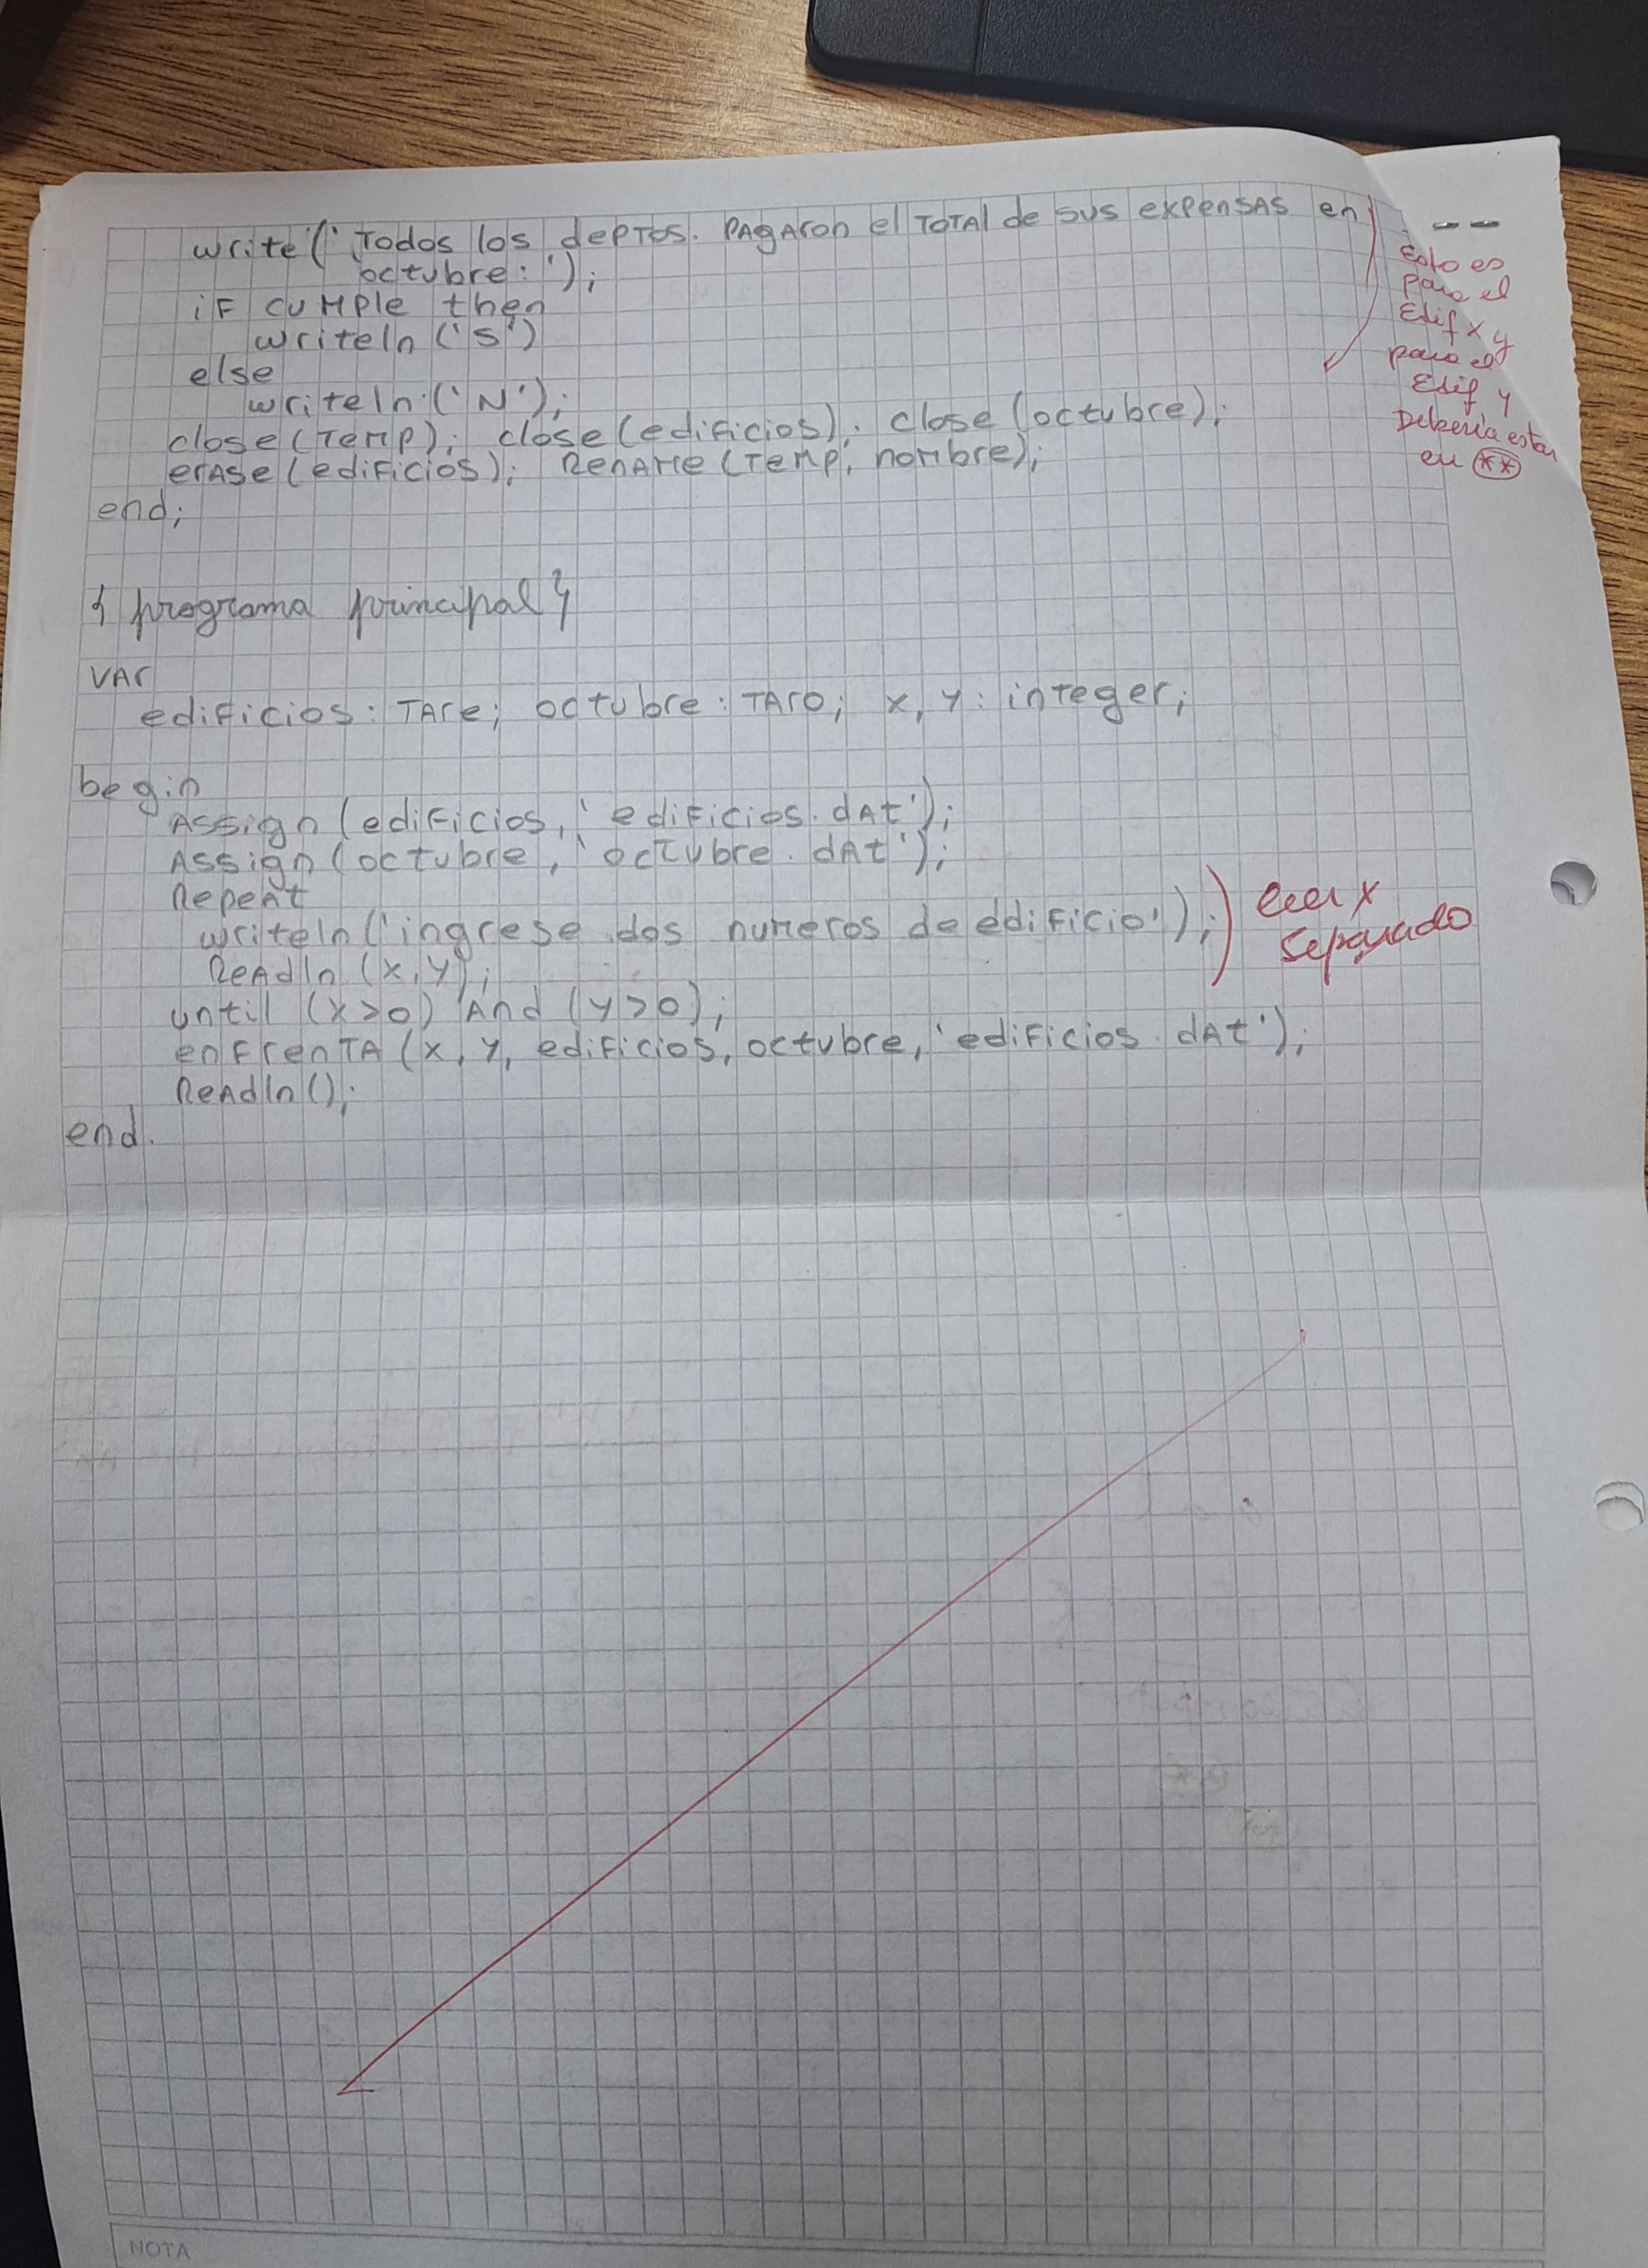 write('Todos los deptos. pagaron el total de sus expensas en
octubre:');
if cumple then
writeln('S')
else
writeln('N');
close(temp); close(edificios); close(octubre);
erase(edificios); Rename(temp, nombre);
end;
Esto es
para el
Edif x y
para el
Edif y
Debería estar
en **
{ programa principal }
var
edificios: TAre; octubre: TAro; x, y: integer;
begin
Assign(edificios, 'edificios.dat');
Assign(octubre, 'octubre.dat');
Repeat
writeln('ingrese dos numeros de edificio');
Readln(x,y);
leer x
separado
until (x>0) And (y>0);
enfrenta(x, y, edificios, octubre, 'edificios.dat');
Readln();
end.
NOTA